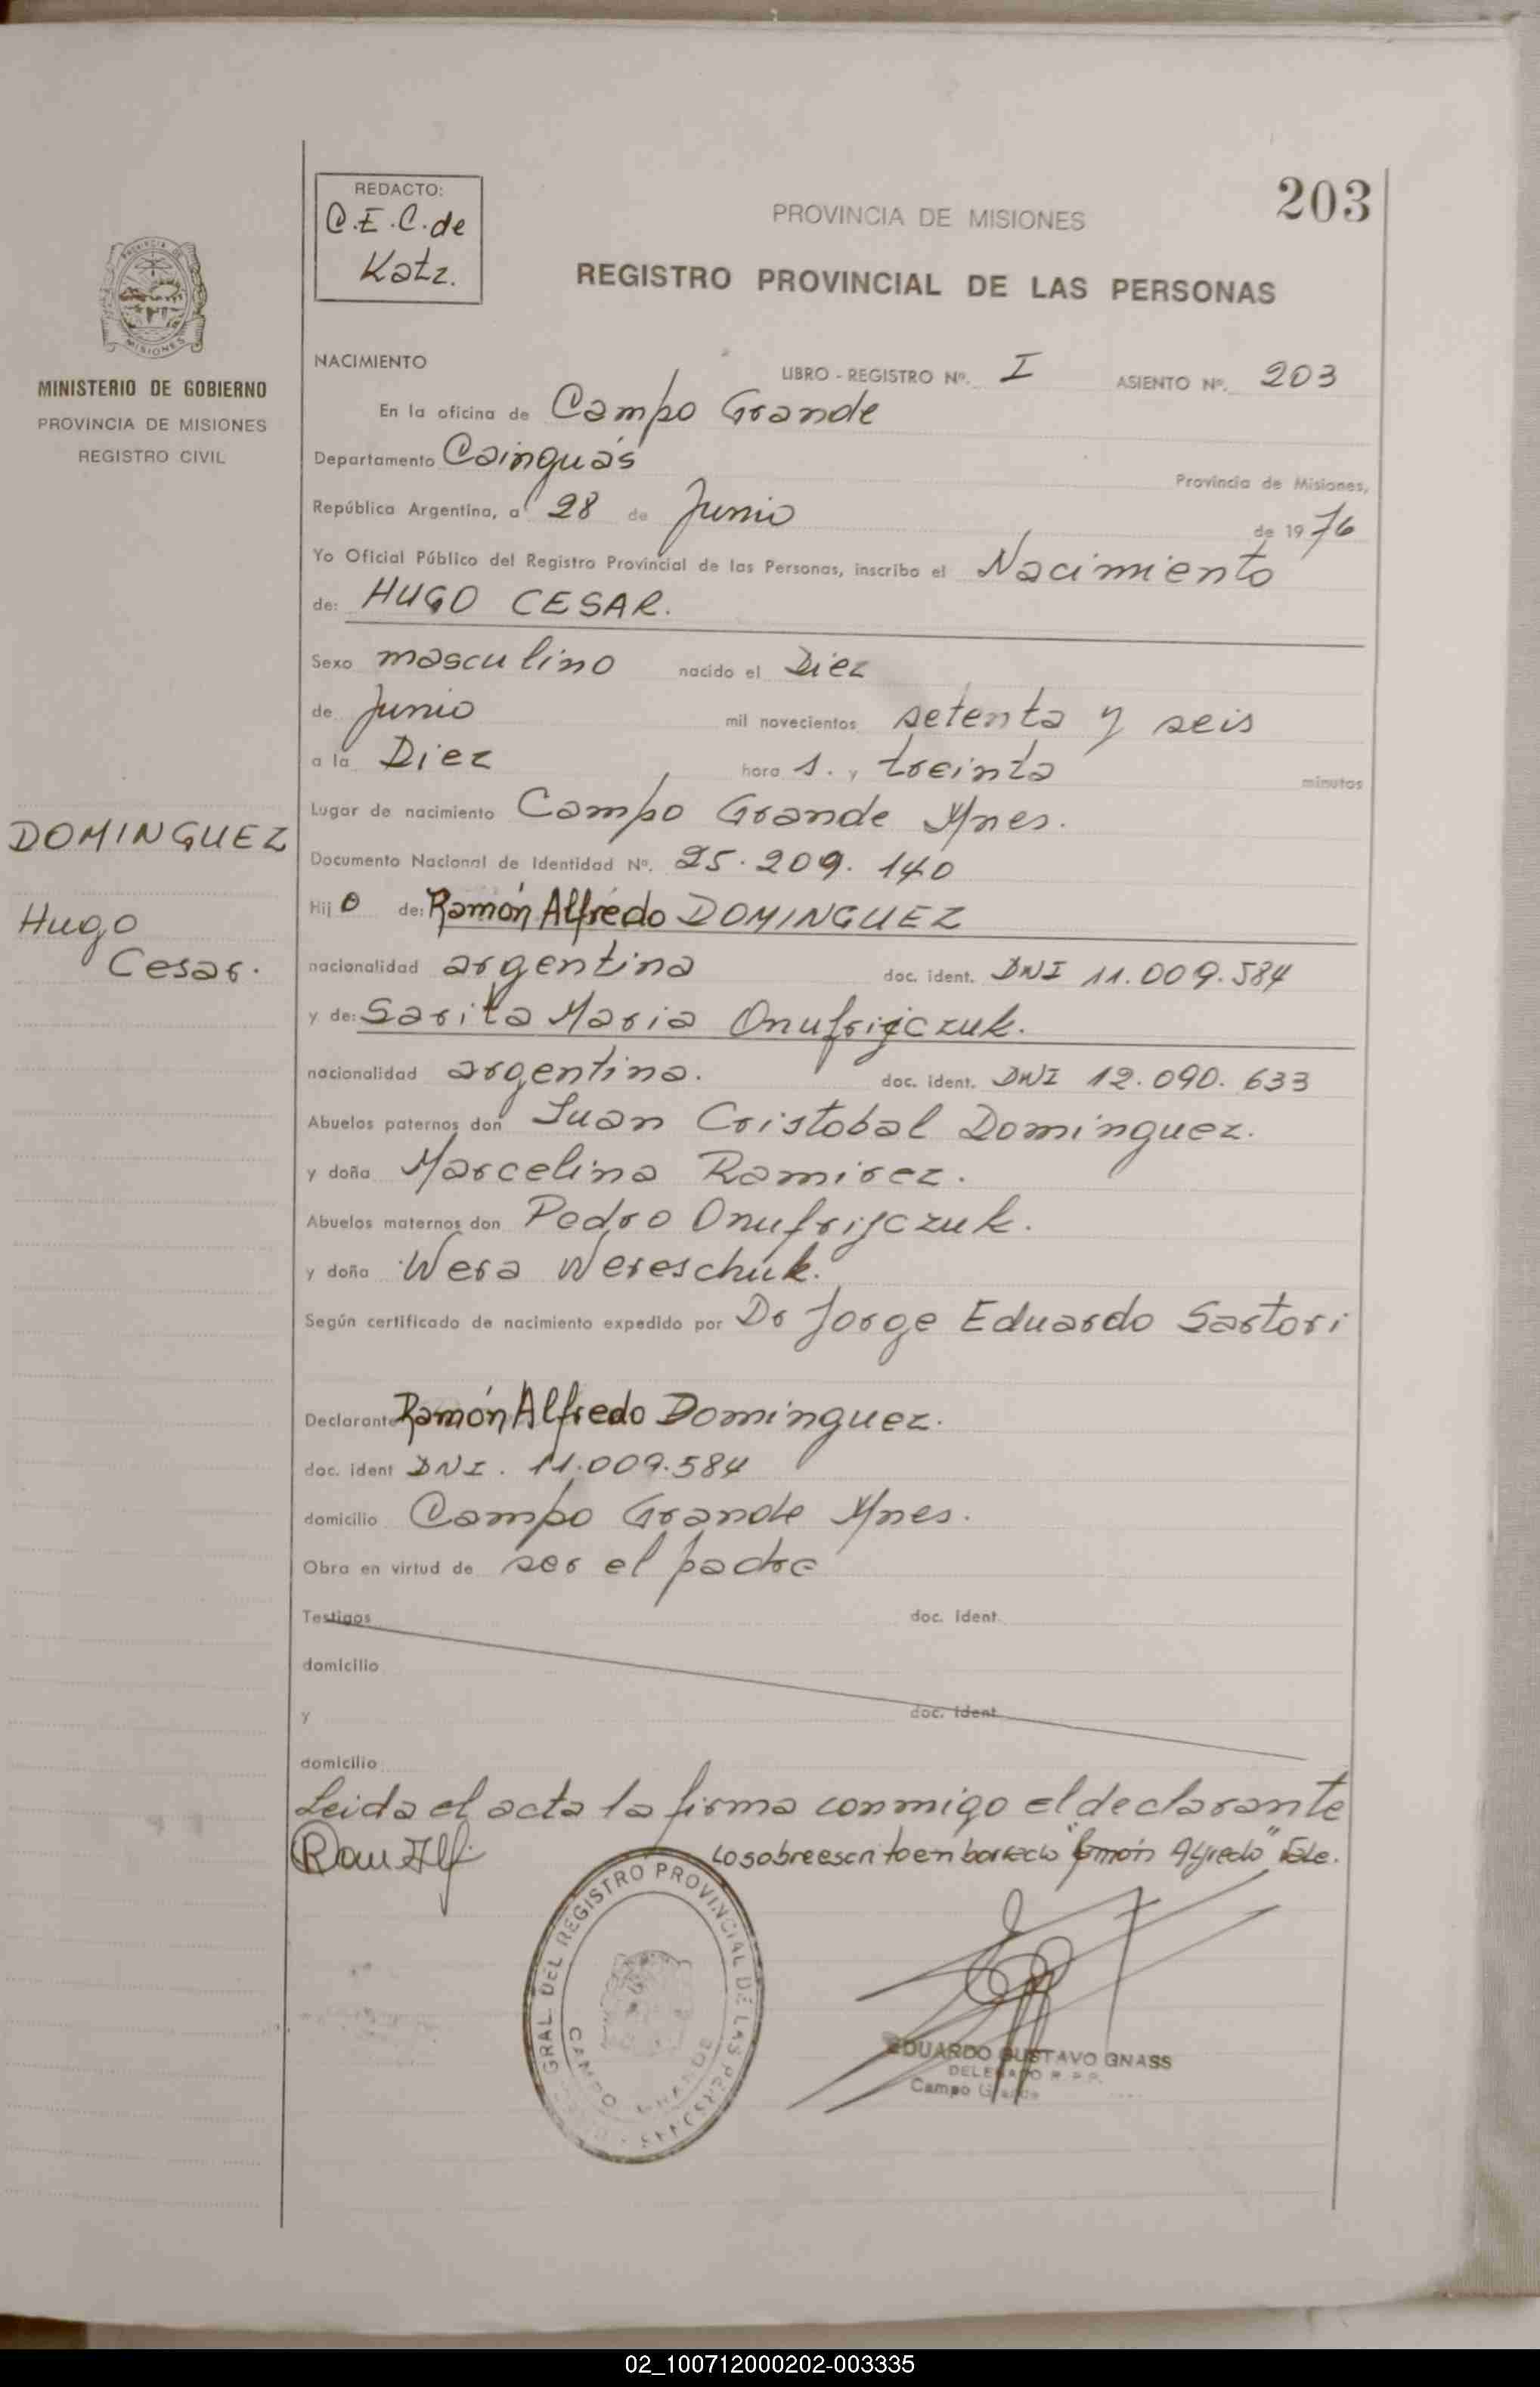 203
REDACTO:
C.E.C. de
Katz.
PROVINCIA DE MISIONES
REGISTRO PROVINCIAL DE LAS PERSONAS
PROVINCIA DE
MISIONES
MINISTERIO DE GOBIERNO
PROVINCIA DE MISIONES
REGISTRO CIVIL
DOMINGUEZ
Hugo
Cesar.
NACIMIENTO
LIBRO - REGISTRO Nº. I ASIENTO Nº. 203
En la oficina de Campo Grande
Departamento Cainguás Provincia de Misiones,
República Argentina, a 28 de Junio de 1976
Yo Oficial Público del Registro Provincial de las Personas, inscribo el Nacimiento
de: HUGO CESAR.
Sexo masculino nacido el Diez
de Junio mil novecientos setenta y seis
a la Diez hora s. y treinta minutos
Lugar de nacimiento Campo Grande Mnes.
Documento Nacional de Identidad Nº. 25.209.140
Hij o de: Ramón Alfredo DOMINGUEZ
nacionalidad argentina doc. ident. DNI 11.009.584
y de: Sarita Maria Onufrijczuk.
nacionalidad argentina. doc. ident. DNI 12.090.633
Abuelos paternos don Juan Cristobal Dominguez.
y doña Marcelina Ramirez.
Abuelos maternos don Pedro Onufrijczuk.
y doña Wera Wereschuk.
Según certificado de nacimiento expedido por Dr Jorge Eduardo Sartori
Declarante Ramón Alfredo Dominguez.
doc. ident DNI. 11.009.584
domicilio Campo Grande Mnes.
Obra en virtud de ser el padre
Testigos doc. ident.
domicilio
y doc. ident.
domicilio
Leida el acta la firma conmigo el declarante
Lo sobreescrito en borrado "Ramón Alfredo" Vale.
GRAL. DEL REGISTRO PROVINCIAL DE LAS PERSONAS
CAMPO GRANDE
EDUARDO GUSTAVO GNASS
DELEGADO R.P.P.
Campo Grande
02_100712000202-003335